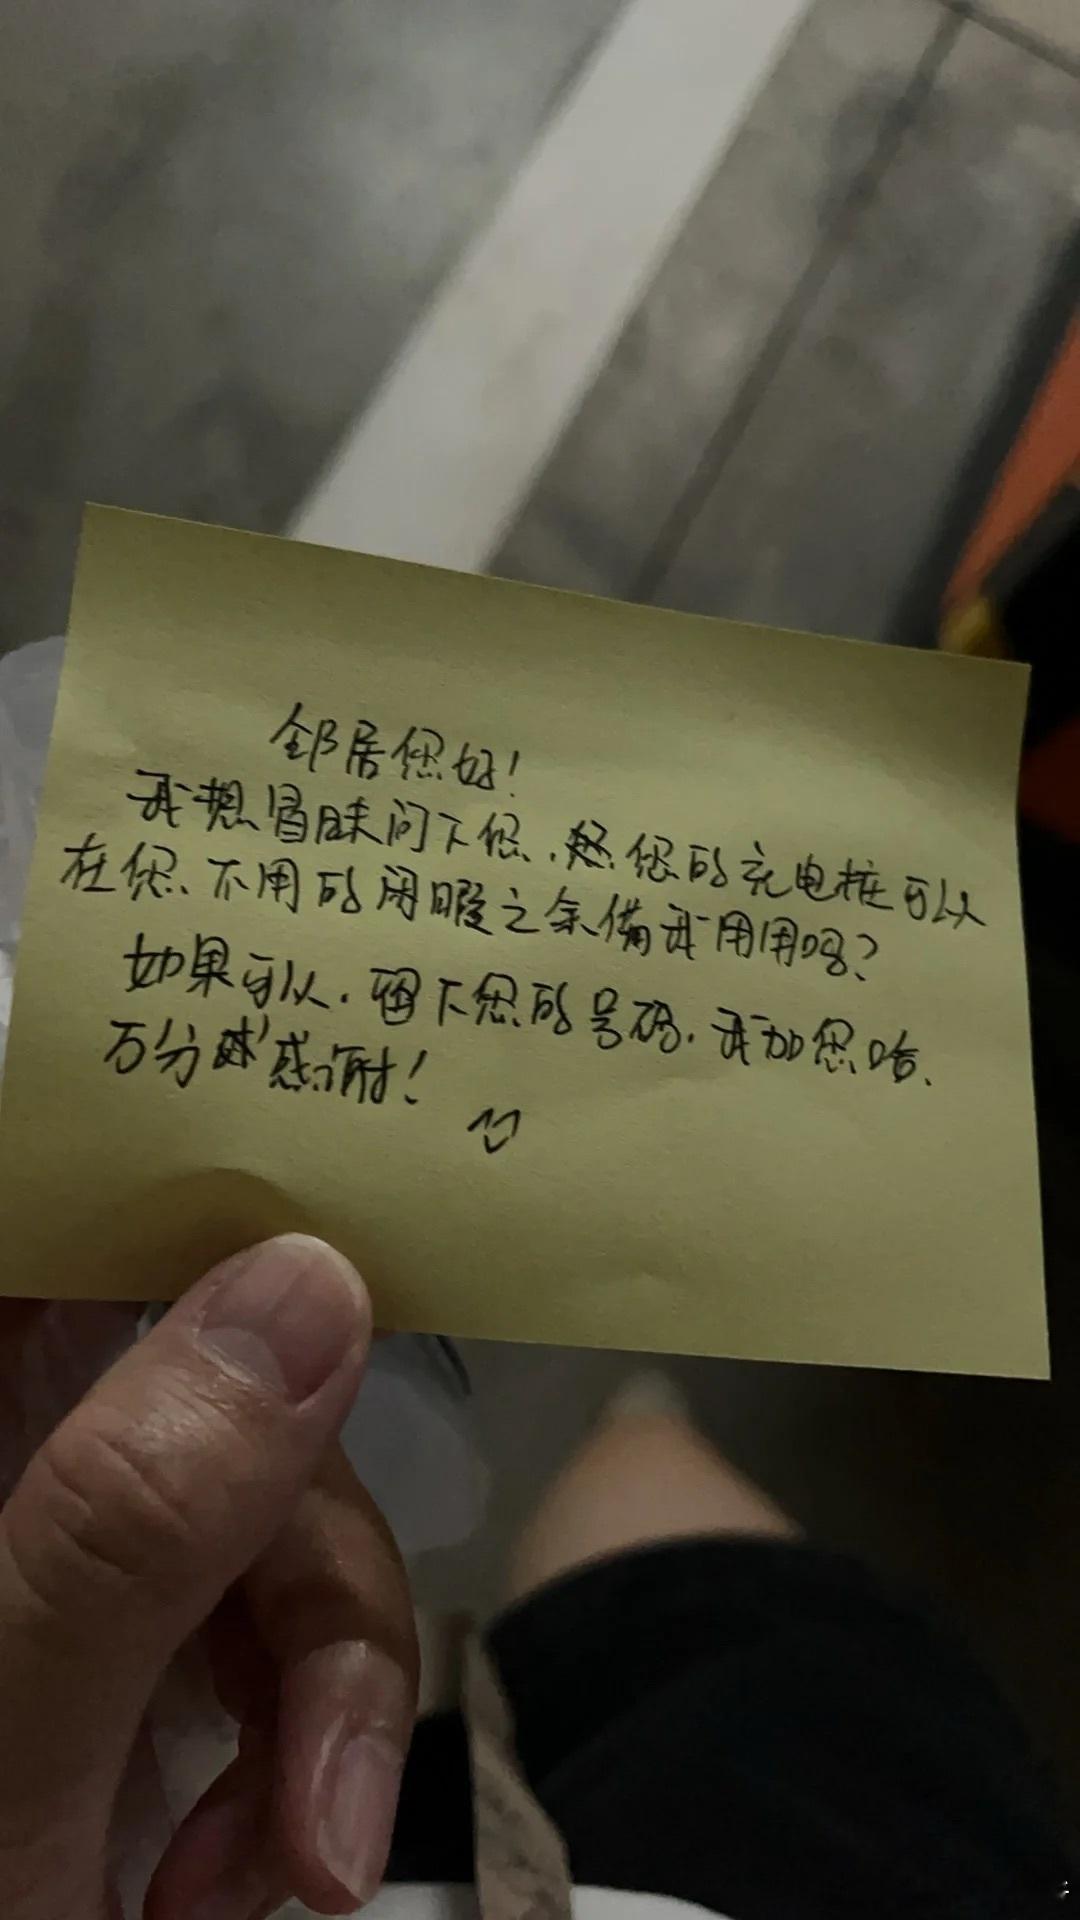 邻居您好!
我想冒昧问下您,您的充电桩可以
在您不用的闲暇之余借我用用吗?
如果可以,留下您的号码,我加您哈.
万分感谢!